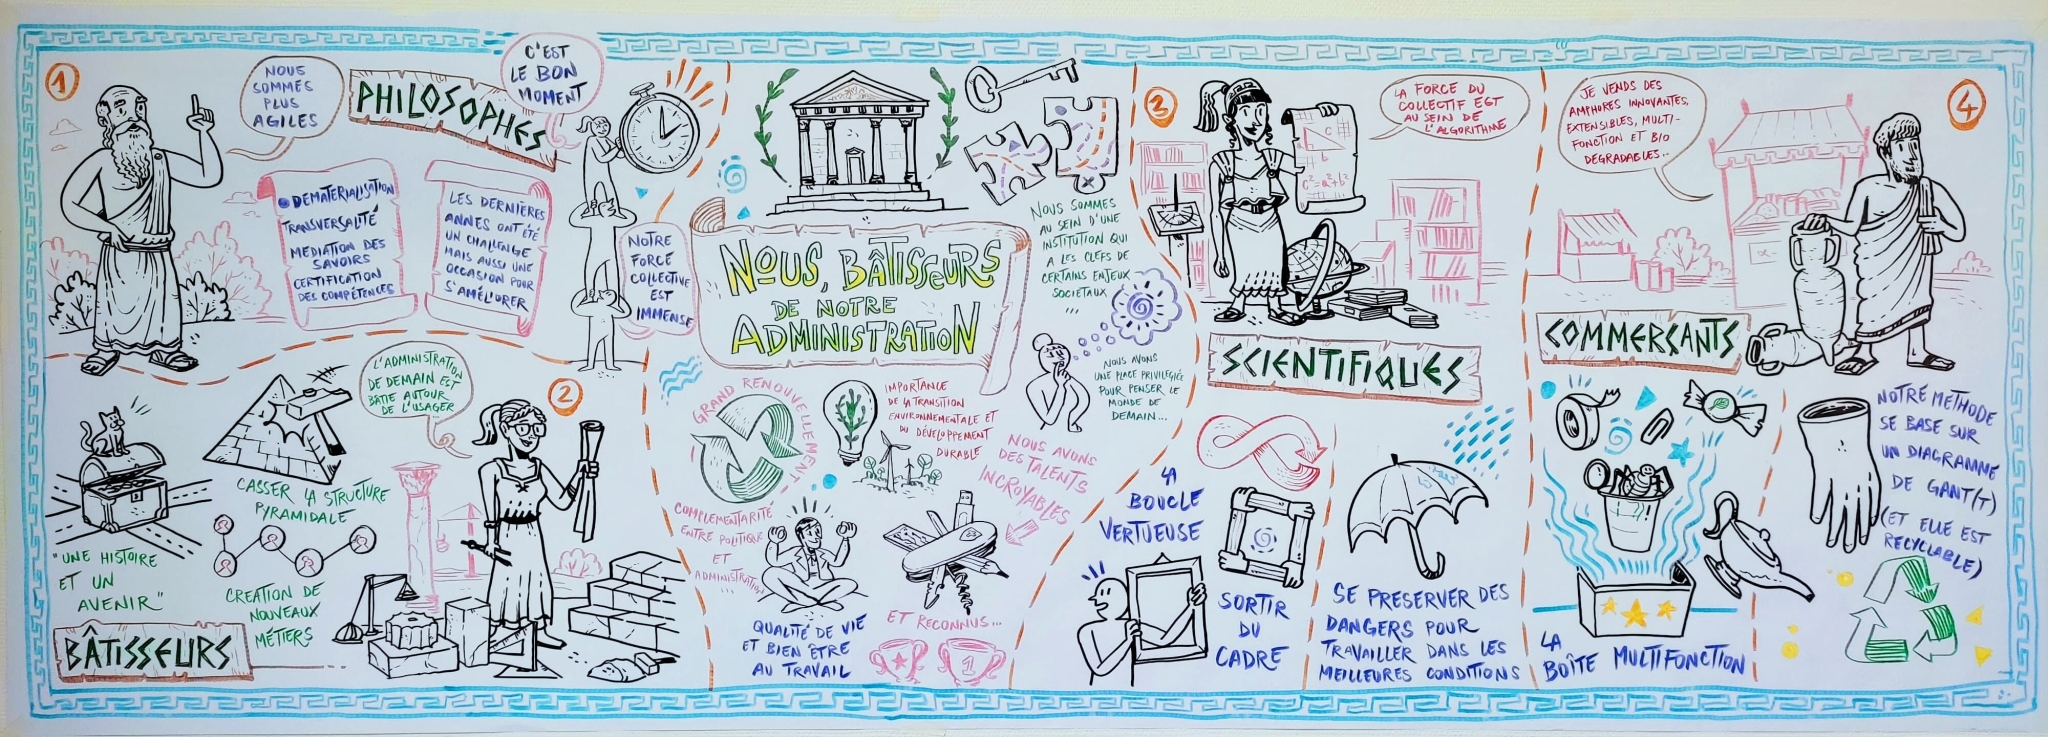 1
NOUS
SOMMES
PLUS
AGILES
PHILOSOPHES
C'EST
LE BON
MOMENT
DEMATERIALISATION
TRANSVERSALITÉ
MEDIATION DES
SAVOIRS
CERTIFICATION
DES COMPÉTENCES
LES DERNIÈRES
ANNÉES ONT ÉTÉ
UN CHALLENGE
MAIS AUSSI UNE
OCCASION POUR
S'AMÉLIORER
NOTRE
FORCE
COLLECTIVE
EST
IMMENSE
2
L'ADMINISTRATION
DE DEMAIN EST
BATIE AUTOUR
DE L'USAGER
...
CASSER LA STRUCTURE
PYRAMIDALE
"UNE HISTOIRE
ET UN
AVENIR"
CREATION DE
NOUVEAUX
MÉTIERS
BÂTISSEURS
NOUS, BÂTISSEURS
DE NOTRE
ADMINISTRATION
NOUS SOMMES
AU SEIN D'UNE
INSTITUTION QUI
A LES CLEFS DE
CERTAINS ENJEUX
SOCIETAUX
...
NOUS AVONS
UNE PLACE PRIVILEGIÉE
POUR PENSER LE
MONDE DE
DEMAIN...
GRAND RENOUVELLEMENT
IMPORTANCE
DE LA TRANSITION
ENVIRONNEMENTALE ET
DU DÉVELOPPEMENT
DURABLE
NOUS AVONS
DES TALENTS
INCROYABLES
COMPLEMENTARITÉ
ENTRE POLITIQUE
ET
ADMINISTRATION
...
QUALITÉ DE VIE
ET BIEN ÊTRE
AU TRAVAIL
ET RECONNUS...
1
3
LA FORCE DU
COLLECTIF EST
AU SEIN DE
L'ALGORITHME
c
b
c²=a²+b²
SCIENTIFIQUES
LA
BOUCLE
VERTUEUSE
SORTIR
DU
CADRE
SE PRESERVER DES
DANGERS POUR
TRAVAILLER DANS LES
MEILLEURES CONDITIONS
4
JE VENDS DES
AMPHORES INNOVANTES,
EXTENSIBLES, MULTI-
FONCTION ET BIO
DEGRADABLES...
COMMERÇANTS
LA
BOÎTE MULTIFONCTION
NOTRE METHODE
SE BASE SUR
UN DIAGRAMME
DE GANT(T)
(ET ELLE EST
RECYCLABLE)